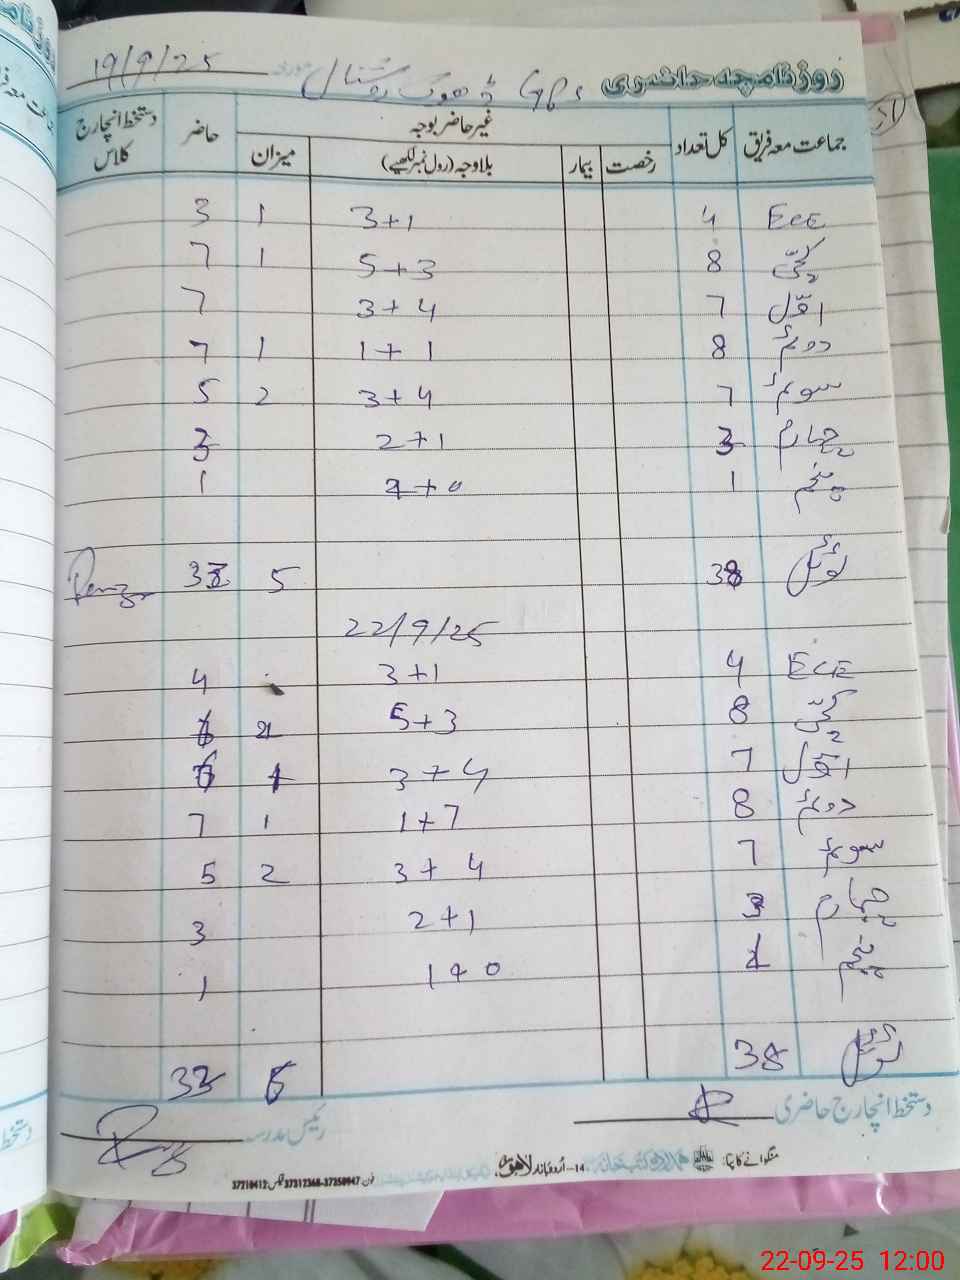 روزنامچہ حاضری GPS ڈھوک مورخہ 19/9/25
جماعت معہ فریق کل تعداد غیر حاضر بوجہ حاضر دستخط انچارج کلاس
رخصت بیمار بلاوجہ (رول نمبر لکھیے) میزان
ECE 4 3+1 1 3
کچی 8 5+3 1 7
اوّل 7 3+4 7
دوئم 8 1+1 1 7
سوئم 7 3+4 2 5
چہارم 3 2+1 3
پنجم 1 1+0 1
ٹوٹل 38 5 33
22/9/25
ECE 4 3+1 4
کچی 8 5+3 2 6
اوّل 7 3+4 1 6
دوئم 8 1+7 1 7
سوئم 7 3+4 2 5
چہارم 3 2+1 3
پنجم 1 1+0 1
ٹوٹل 38 6 32
دستخط انچارج حاضری رئیس مدرسہ
منگوانے کا پتہ: 14-اُردو بازار لاہور
فون 37312368-37350947 فیکس 37210412
22-09-25 12:00